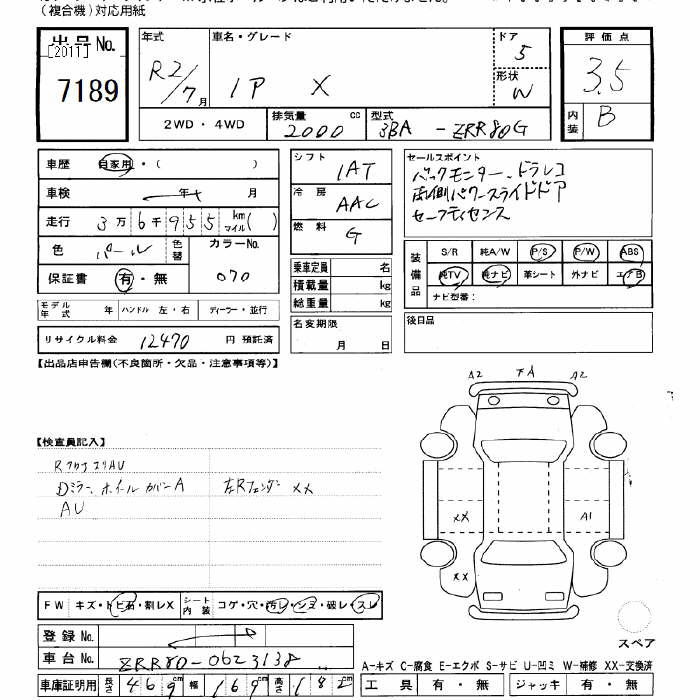 (複合機)対応用紙
出品No.
[2011]
7189
年式
R2/7月
車名・グレード
IP X
ドア
5
形状
W
評価点
3.5
内装
B
2WD・4WD
排気量 cc
2000
型式
3BA-ZRR80G
車歴 自家用・( )
車検 年 月
走行 3万6千955 km マイル( )
色 パール 色替
カラーNo.
070
保証書 有・無
モデル年式 年 ハンドル 左・右 ディーラー・並行
リサイクル料金 12470 円 預託済
シフト
IAT
冷房
AAC
燃料
G
乗車定員 名
積載量 kg
総重量 kg
名変期限
月 日
セールスポイント
バックモニター、ドラレコ
両側パワースライドドア
セーフティセンス
装備品
S/R 純A/W P/S P/W ABS
純TV 純ナビ 革シート 外ナビ エアB
ナビ型番:
後日品
【出品店申告欄(不良箇所・欠品・注意事項等)】
A2 FA A2
XX
A1
XX
スペア
【検査員記入】
Dミラー、ホイールカバーA
左Rフェンダー XX
AU
FW キズ・トビ石・割レX
シート内装 コゲ・穴・汚レ・シミ・破レ・スレ
登録No.
車台No. ZRR80-0623138
車庫証明用 長さ 469cm 幅 169cm 高さ 182cm
A-キズ C-腐食 E-エクボ S-サビ U-凹ミ W-補修 XX-交換済
工具 有・無 ジャッキ 有・無